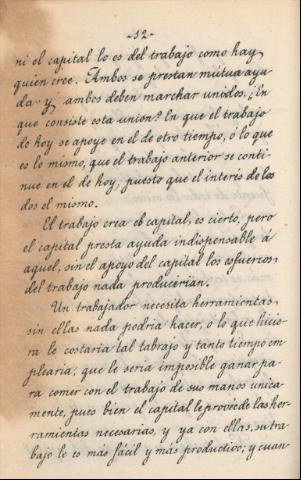 -12-
ni el capital lo es del trabajo como hay
quien cree. Ambos se prestan mútua ayu
da y ambos deben marchar unidos. ¿En
que consiste esta union? En que el trabajo
de hoy se apoye en el de otro tiempo, ó lo que
es lo mismo, que el trabajo anterior se conti-
nue en el de hoy, puesto que el interés de los
dos el mismo.
El trabajo crea el capital, es cierto, pero
el capital presta ayuda indispensable á
aquel, sin el apoyo del capital los esfuerzos
del trabajo nada producirian.
Un trabajador necesita herramientas,
sin ellas nada podria hacer, ó lo que hicie
ra le costaria tal tabrajo y tanto tiempo em
plearia, que le seria imposible ganar pa
ra comer con el trabajo de sus manos unica
mente, pues bien el capital le provée de las her-
ramientas necesarias, y ya con ellas, su tra-
bajo le es más fácil y más productivo; y cuan-